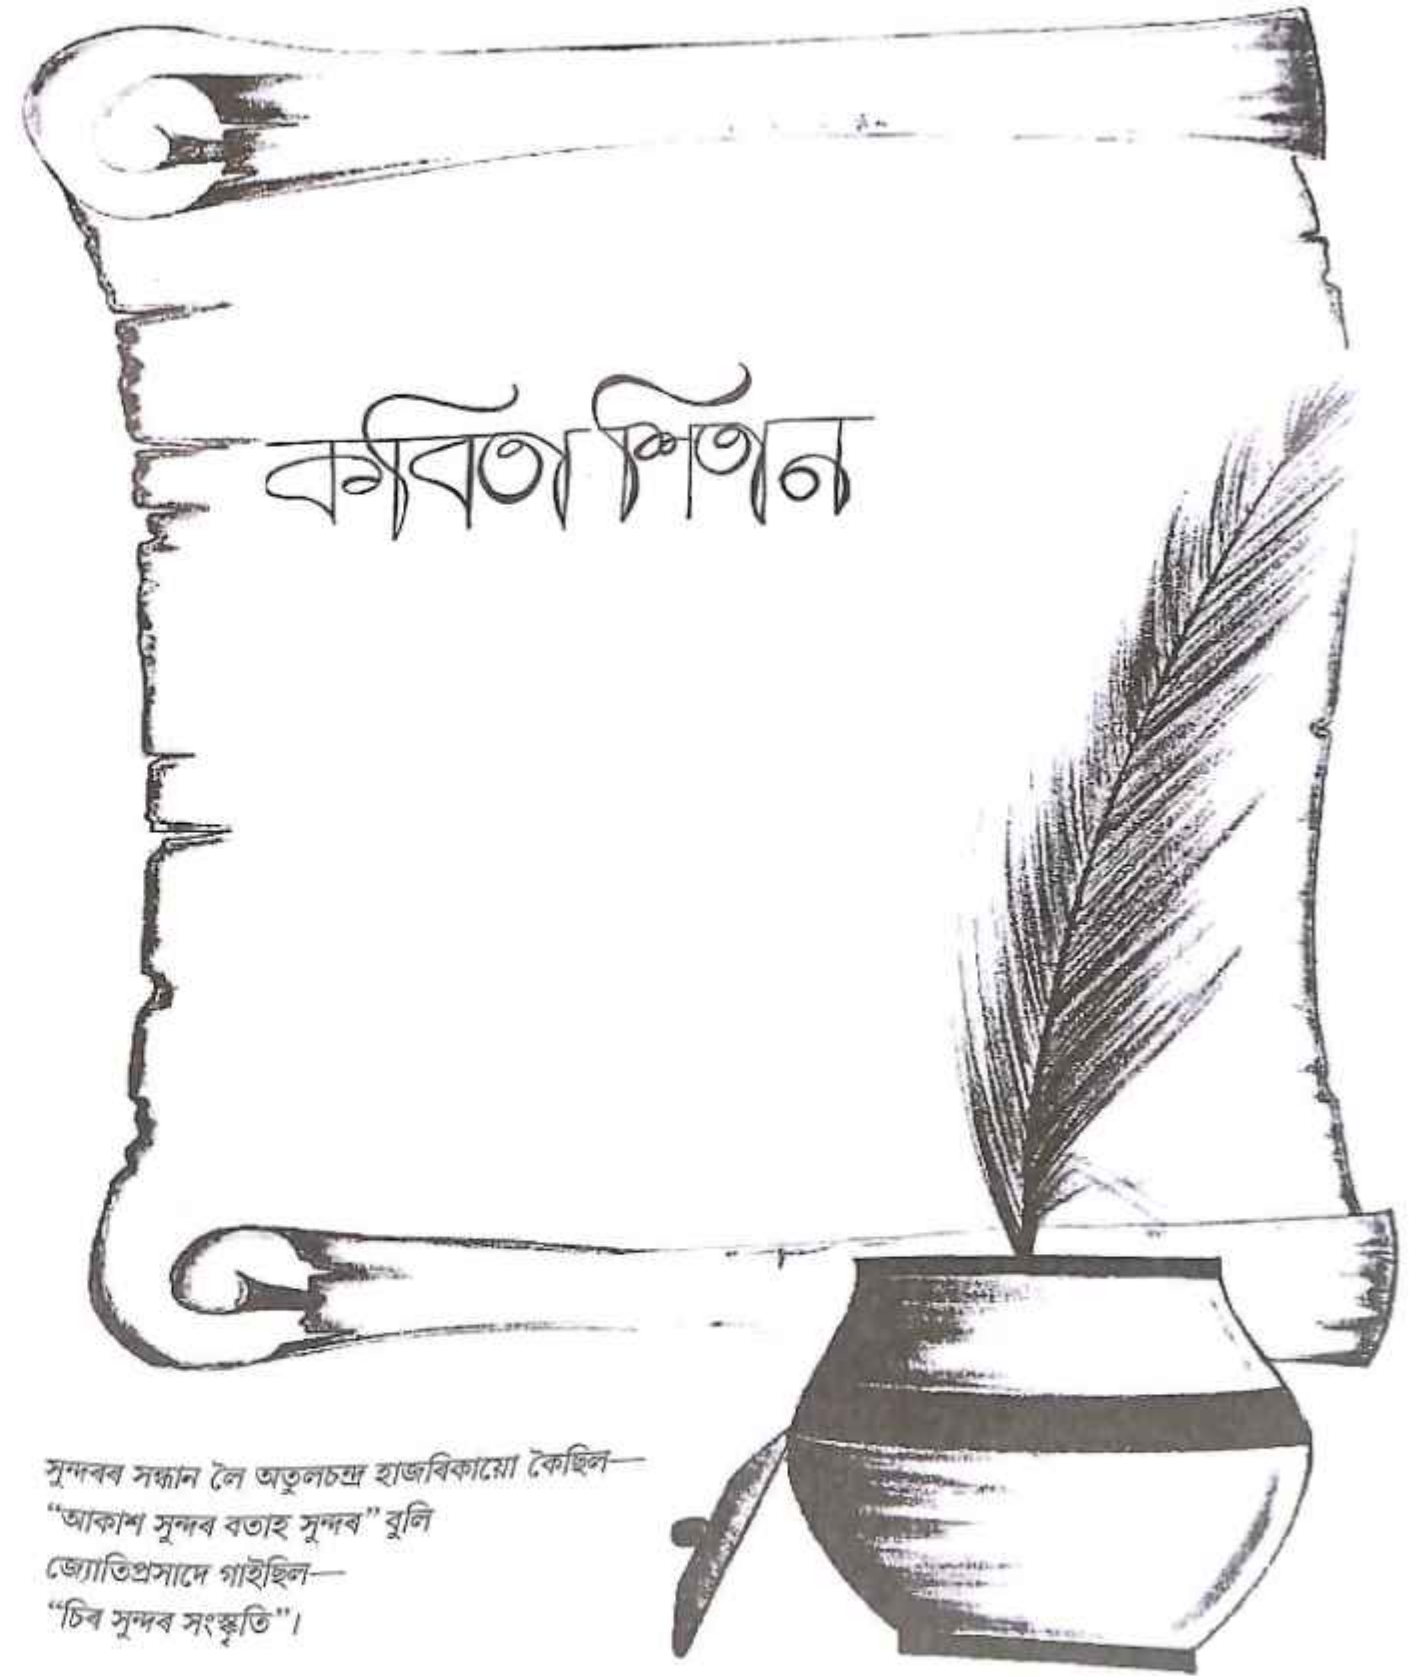 কবিতা শিতান
সুন্দৰৰ সন্ধান লৈ অতুলচন্দ্ৰ হাজৰিকায়ো কৈছিল—
“আকাশ সুন্দৰ বতাহ সুন্দৰ” বুলি
জ্যোতিপ্ৰসাদে গাইছিল—
“চিৰ সুন্দৰ সংস্কৃতি”।